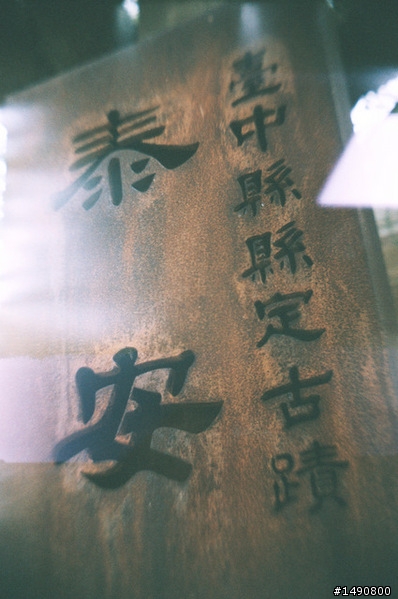 臺中縣縣定古蹟
泰安
#1490800